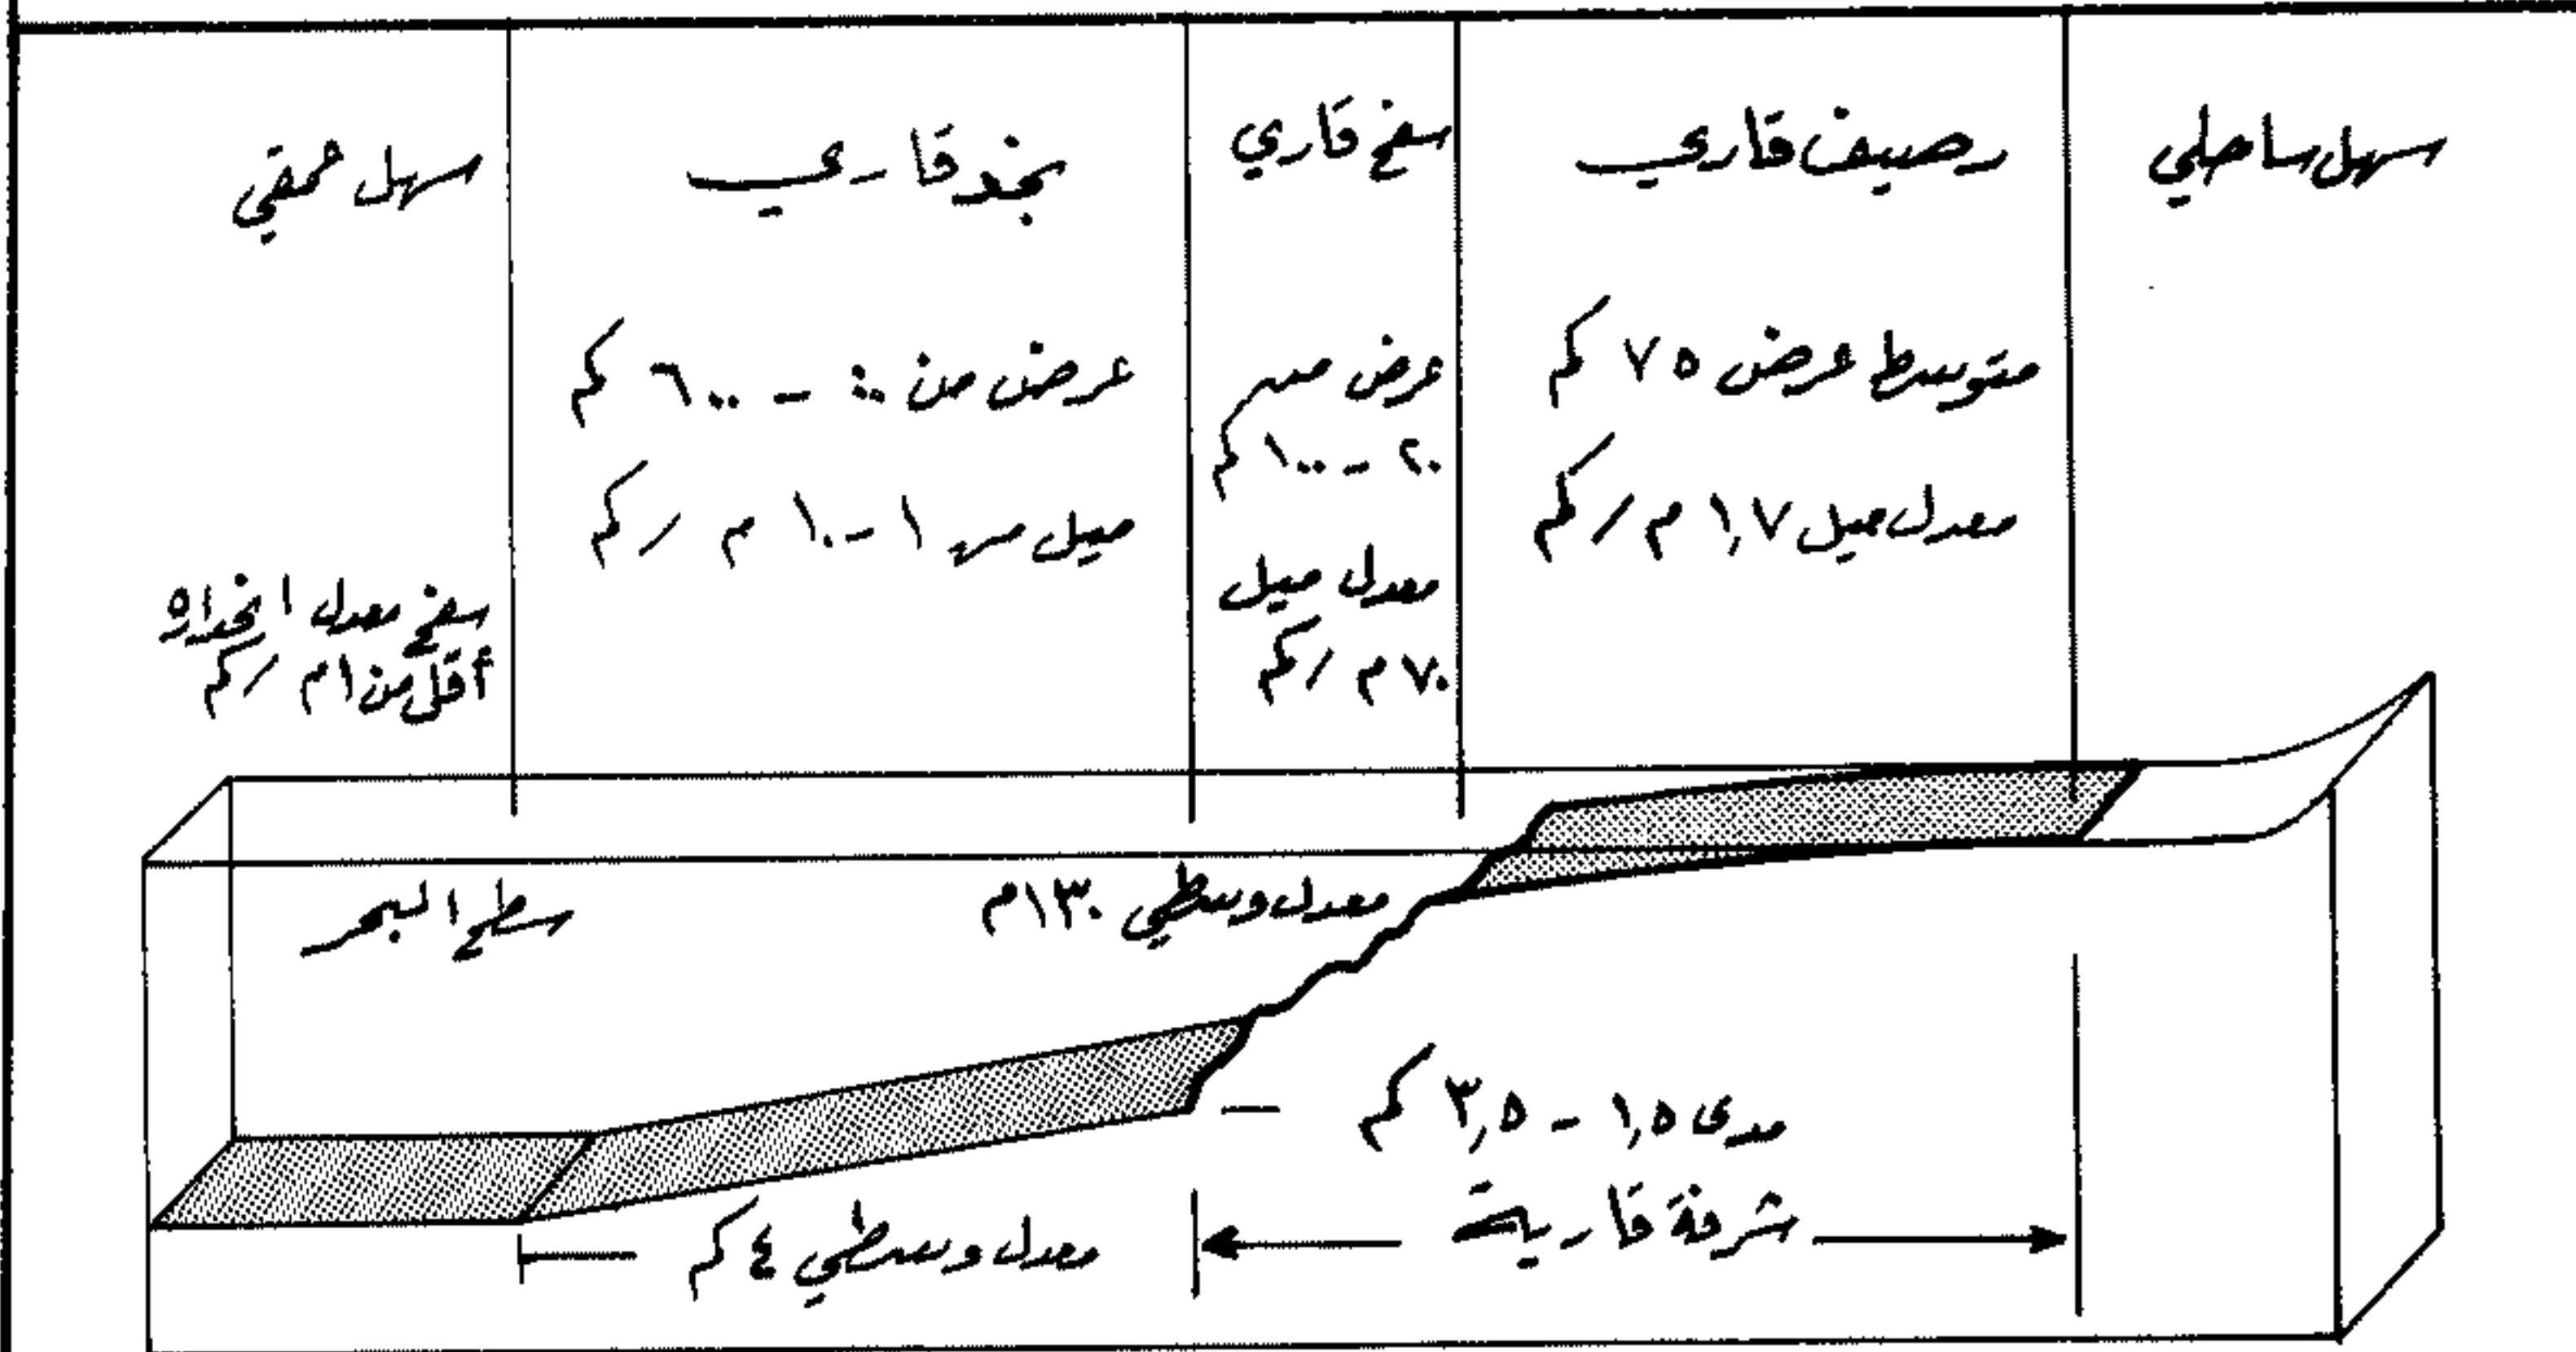 سهل ساحلي
رصيف قاري
متوسط عرض ٧٥ كم
معدل ميل ١,٧ م / كم
سفح قاري
عرض من
٢٠ - ١٠٠ كم
معدل ميل
٧٠ م / كم
نجد قاري
عرض من - ٦٠٠ كم
ميل من ١ - ١٠ م / كم
سهل عمقي
سفح معدل انحداره
أقل من ١ م / كم
سطح البحر
معدل وسطي ١٣٠ م
مدى ١,٥ - ٣,٥ كم
شرفة قارية
معدل وسطي ٤ كم